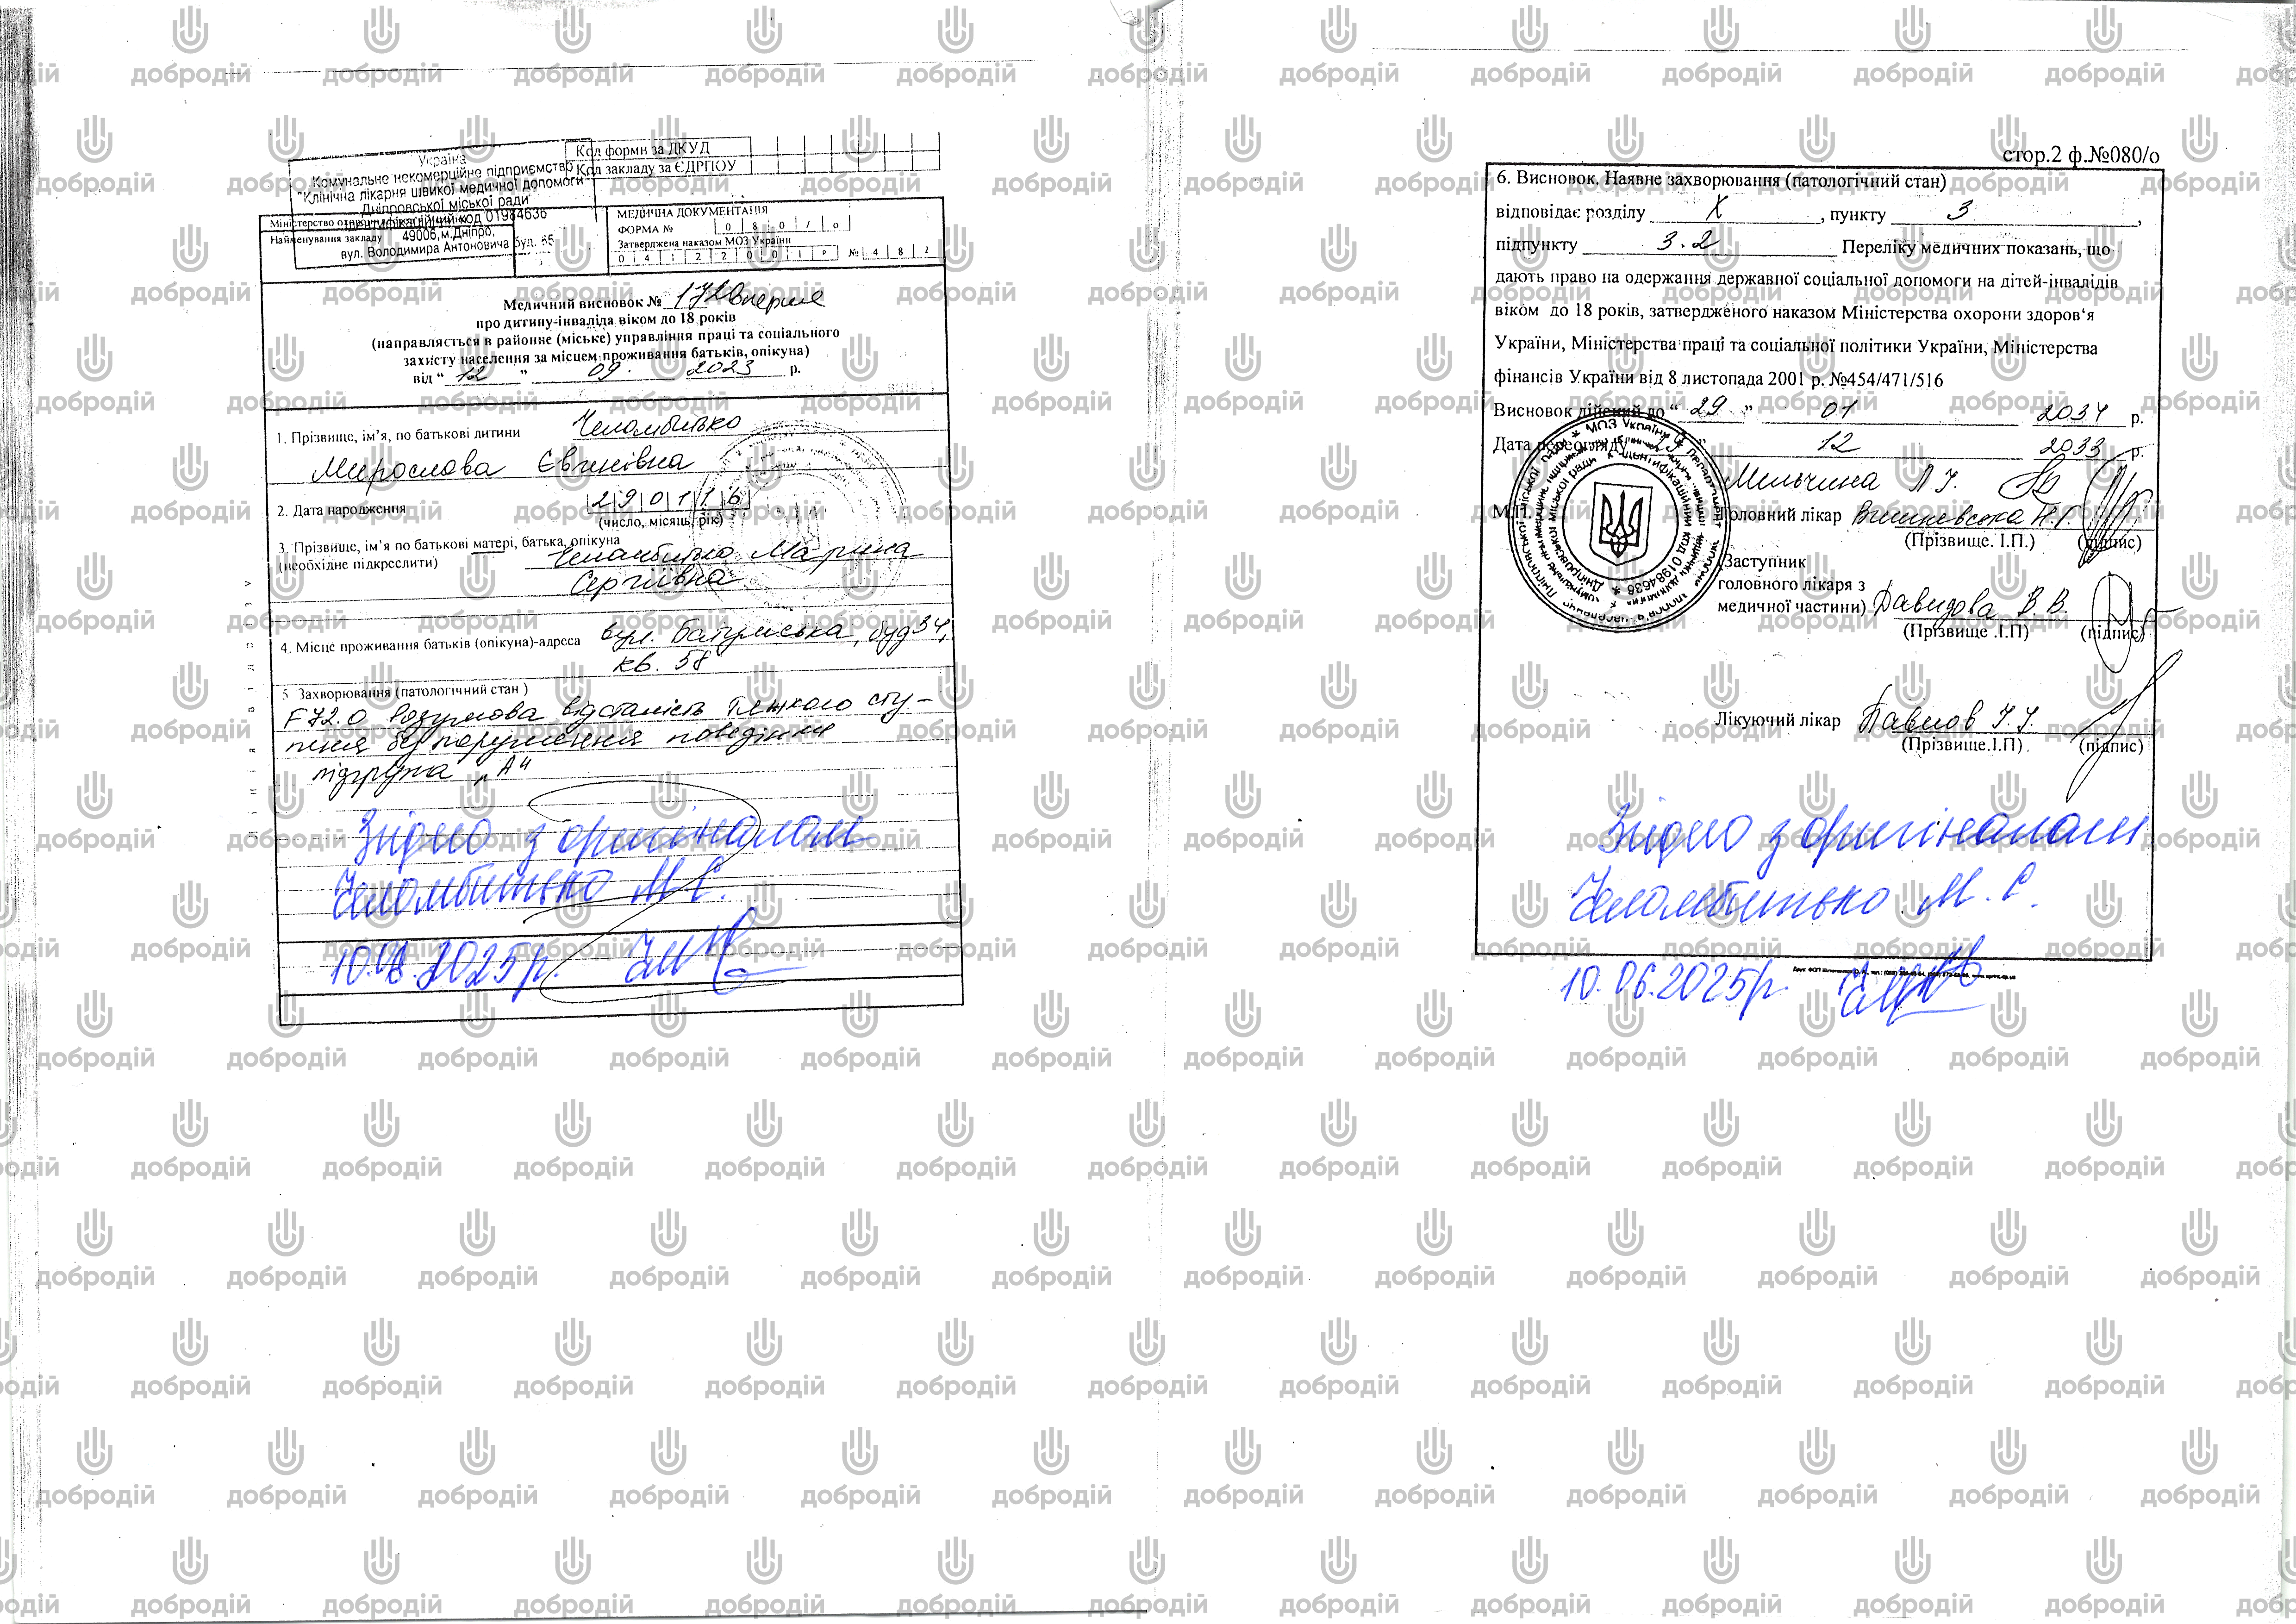 Україна
Комунальне некомерційне підприємство
"Клінічна лікарня швидкої медичної допомоги"
Дніпровської міської ради
Ідентифікаційний код 01984636
49006, м.Дніпро,
вул. Володимира Антоновича буд. 65
Код форми за ДКУД
Код закладу за ЄДРПОУ
Найменування закладу
МЕДИЧНА ДОКУМЕНТАЦІЯ
ФОРМА № 0 8 0 / о
Затверджена наказом МОЗ України
№ 4 8 2
Медичний висновок № 172 вперше
про дитину-інваліда віком до 18 років
(направляється в районне (міське) управління праці та соціального
захисту населення за місцем проживання батьків, опікуна)
від " 12 " 09. 2023 р.
1. Прізвище, ім'я, по батькові дитини Челомбитько
Мирослава Євгенівна
2. Дата народження 290116
(число, місяць, рік)
3. Прізвище, ім'я по батькові матері, батька, опікуна
(необхідне підкреслити) Челомбитько Марина
Сергіївна
4. Місце проживання батьків (опікуна)-адреса вул. Батумська, буд 34,
кв. 58
5. Захворювання (патологічний стан )
F72.0 Розумова відсталість тяжкого сту-
пеня без порушення поведінки
підгрупа "А"
Згідно з оригіналом
Челомбитько М.С.
10.06.2025р.
стор.2 ф.№080/о
6. Висновок. Наявне захворювання (патологічний стан)
відповідає розділу X , пункту 3 ,
підпункту 3.2 Переліку медичних показань, що
дають право на одержання державної соціальної допомоги на дітей-інвалідів
віком до 18 років, затвердженого наказом Міністерства охорони здоров'я
України, Міністерства праці та соціальної політики України, Міністерства
фінансів України від 8 листопада 2001 р. №454/471/516
Висновок дійсний до " 29 " 01 2034 р.
Дата переогляду 12 2033 р.
Мильчина Л.І.
Головний лікар Вишневська Н.Г.
(Прізвище. І.П.) (підпис)
(Заступник
головного лікаря з
медичної частини) Давидова В.В.
(Прізвище .І.П) (підпис)
Лікуючий лікар Павлов І.І.
(Прізвище.І.П) (підпис)
Ідентифікаційний код 01984636
Згідно з оригіналом
Челомбитько М.С.
10.06.2025р.
добродій